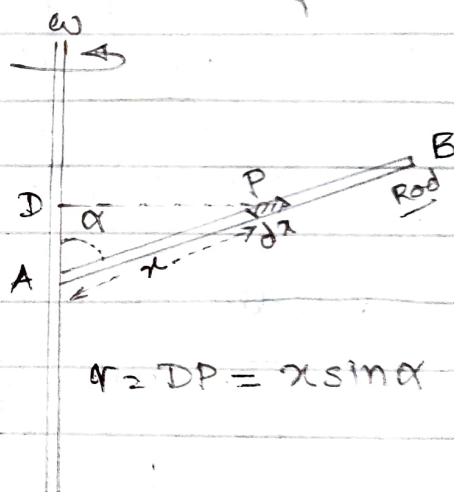 ω
B
P
Rod
D
α
dx
x
A
r = DP = x sin α